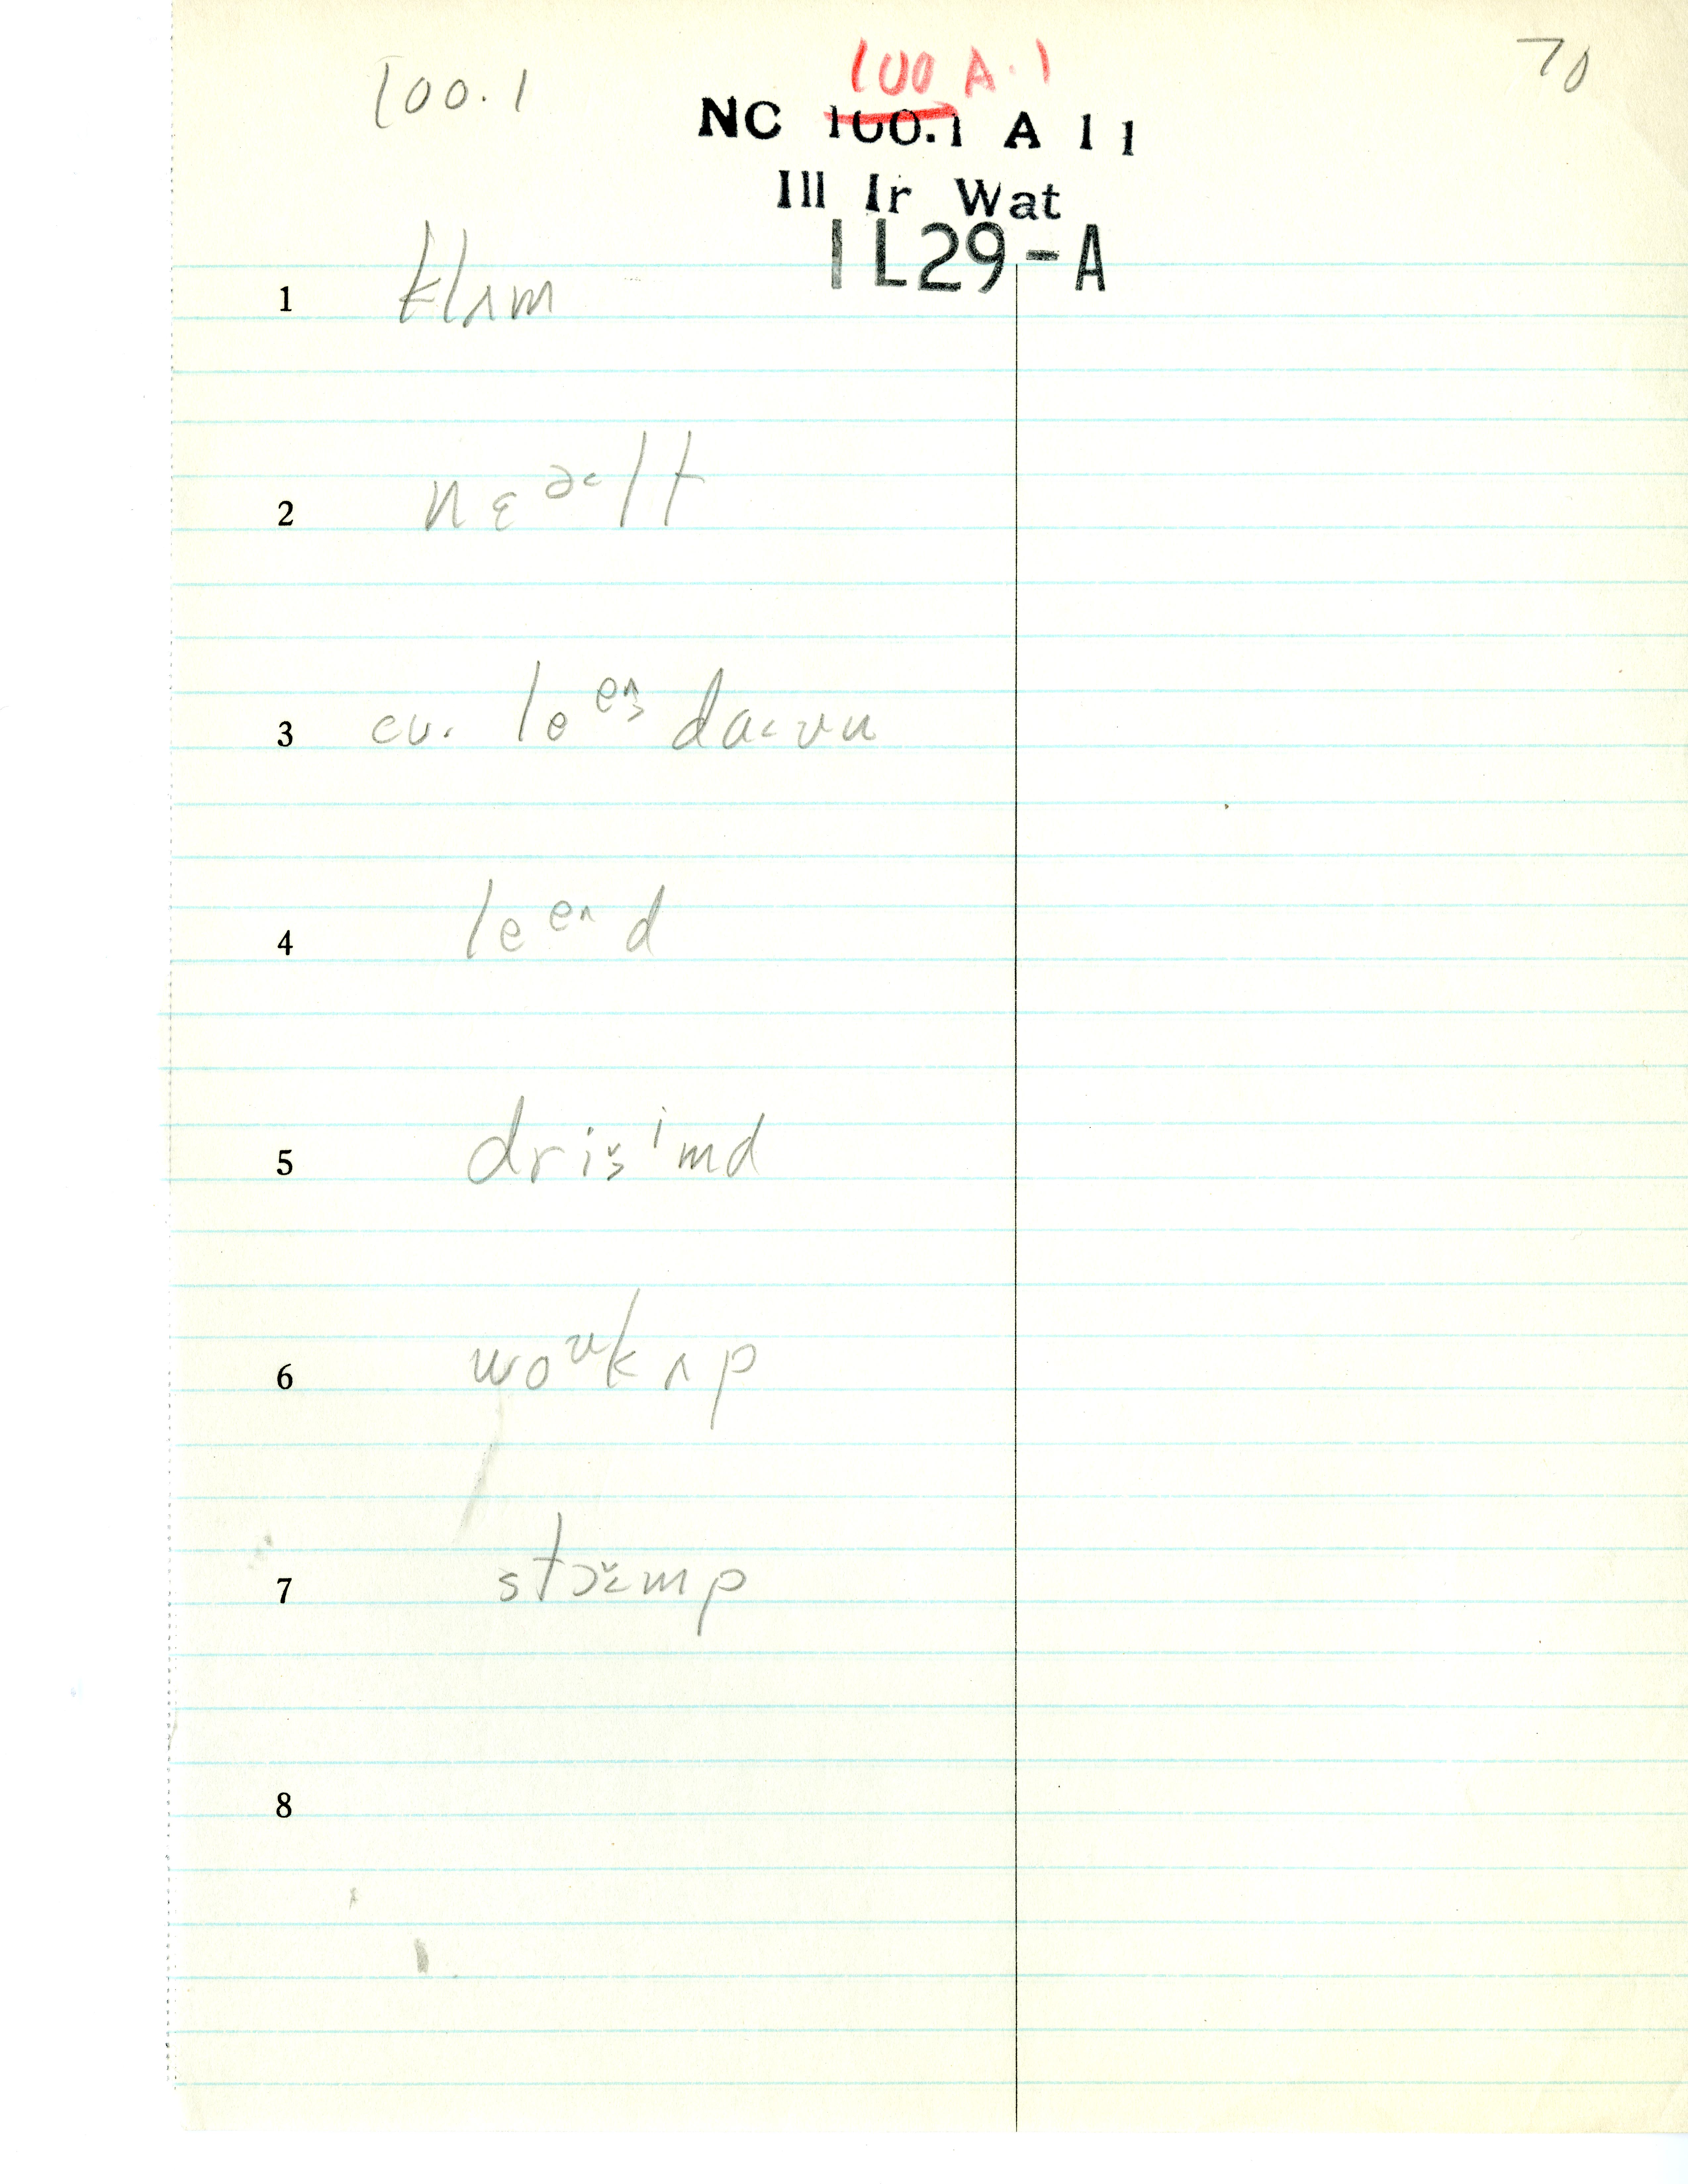 100.1
100 A.1
70
NC 100.1 A 1 1
Ill Ir Wat
IL29-A
1 klʌm
2 nɛᵊ˂lt
3 cv. leᵉ^ꜫda˂ vu
4 leᵉ^d
5 driš̬ⁱmd
6 woᶷkʌp
7 stɔ˘˂mp
8